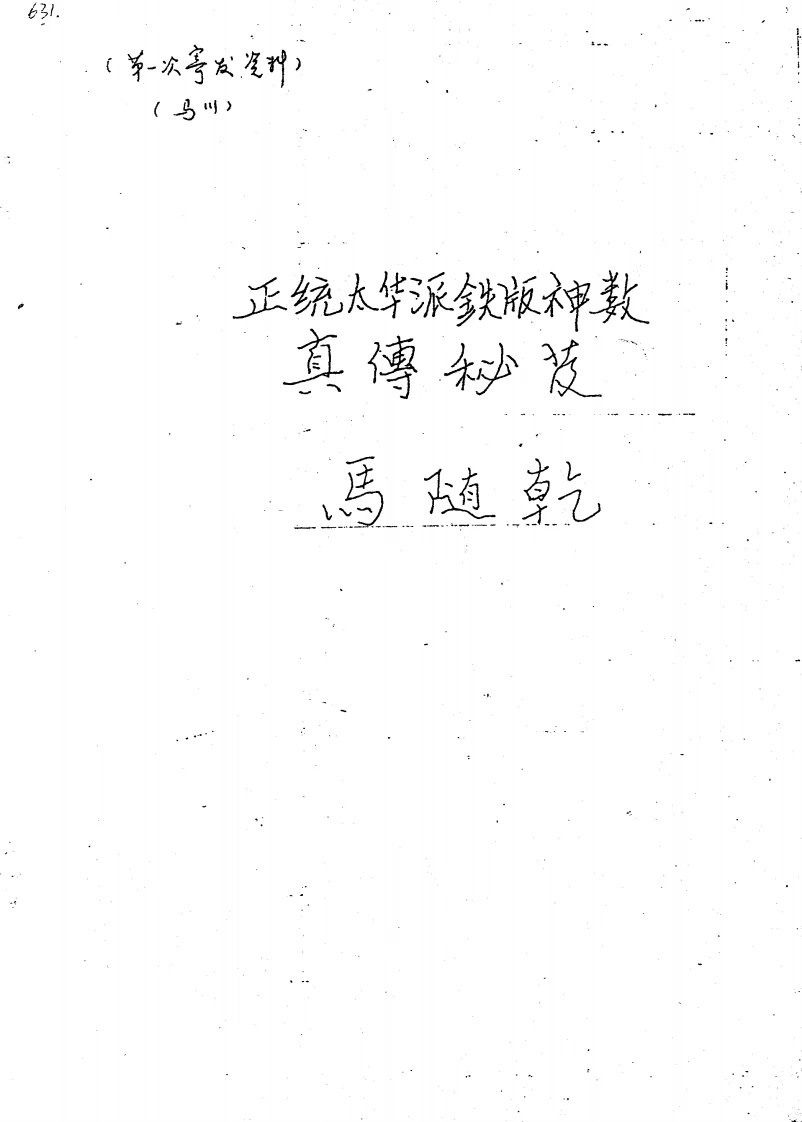 631.
(第一次寄发资料)
(马川)
正统太华派鉄版神数
真傳秘
馬随乾